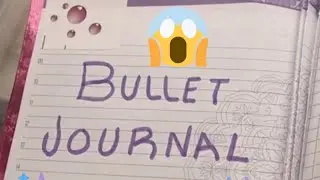 BULLET
JOURNAL